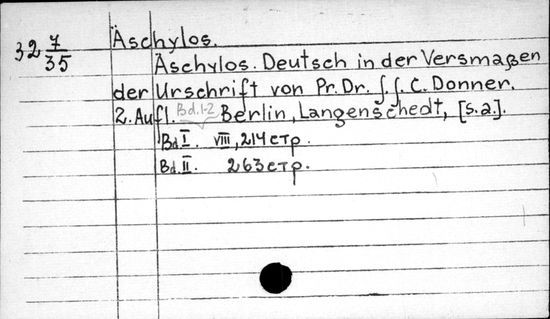 32 7/35 Äschylos.
Äschylos. Deutsch in der Versmaßen
der Urschrift von Pr. Dr. J. J. C. Donner.
2. Aufl. Bd. 1-2 Berlin, Langenschedt, [s.a.].
Bd. I. VIII, 214 стр.
Bd. II. 263 стр.